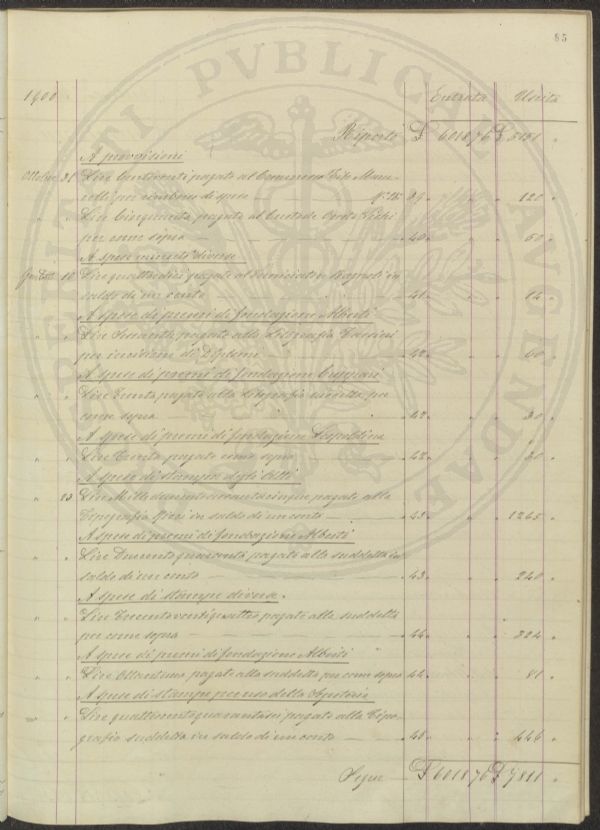 85
1900
Entrata Uscita
Riporto £ 6018 76 £ 5451 "
A provvisioni
Ottobre 31 Lire Centoventi pagate al Commesso
relli per rimborso di spese — 39 " 120 "
" " Lire Cinquanta pagate al Custode
per come sopra — 40 " 50 "
A spese minute diverse
10 Lire quattordici pagate al Bagnoli in
saldo di un conto — 41 " 14 "
A spese di premi di fondazione Alberti
" " Lire Sessanta pagate alla Litografia
per incisioni di Diplomi — 42 " 60 "
A spese di premi di fondazione
" " Lire Trenta pagate alla Litografia suddetta per
come sopra — 42 " 30 "
A spese di premi di fondazione Leopoldina
" " Lire Trenta pagate come sopra — 42 " 30 "
A spese di stampa degli Atti
" Lire Mille duecento sessantacinque pagate alla
Tipografia Ricci in saldo di un conto — 43 " 1265 "
A spese di premi di fondazione Alberti
" " Lire Duecento quaranta pagate alla suddetta in
saldo di un conto — 43 " 240 "
A spese di stampe diverse
" " Lire Trecento ventiquattro pagate alla suddetta
per come sopra — 44 " 324 "
A spese di premi di fondazione Alberti
" " Lire Ottantuna pagate alla suddetta per come sopra 44 " 81 "
A spese di stampe per uso della
" " Lire quattrocento quarantasei pagate alla Tipo-
grafia suddetta in saldo di un conto — 45 " 446 "
Segue £ 6018 76 £ 7811 "
SPERITATI PVBLICAE AVGENDAE